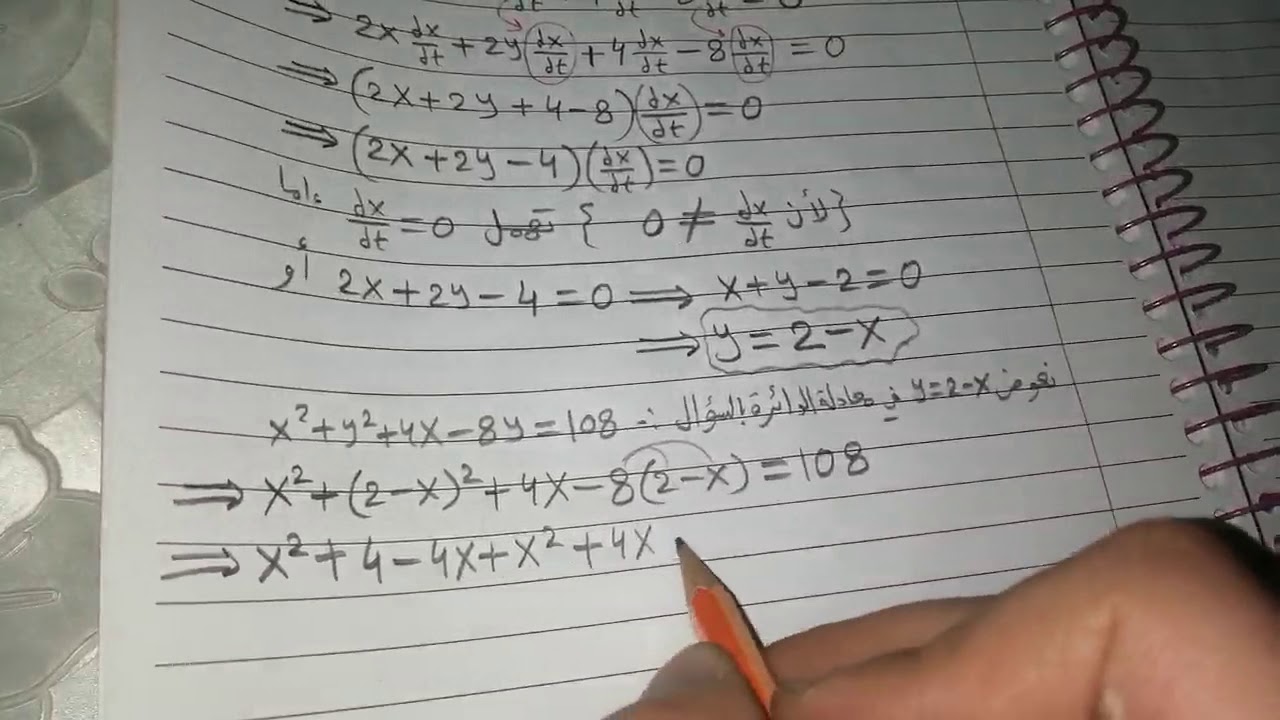 ⇒ 2x dx/dt + 2y (dx/dt) + 4 dx/dt − 8 (dx/dt) = 0
⇒ (2x + 2y + 4 − 8)(dx/dt) = 0
⇒ (2x + 2y − 4)(dx/dt) = 0
اما dx/dt = 0 تهمل { لأن dx/dt ≠ 0 }
أو 2x + 2y − 4 = 0 ⟹ x + y − 2 = 0
⟹ y = 2 − x
نعوض y = 2 − x في معادلة الدائرة بالسؤال ∴ x² + y² + 4x − 8y = 108
⟹ x² + (2 − x)² + 4x − 8(2 − x) = 108
⟹ x² + 4 − 4x + x² + 4x